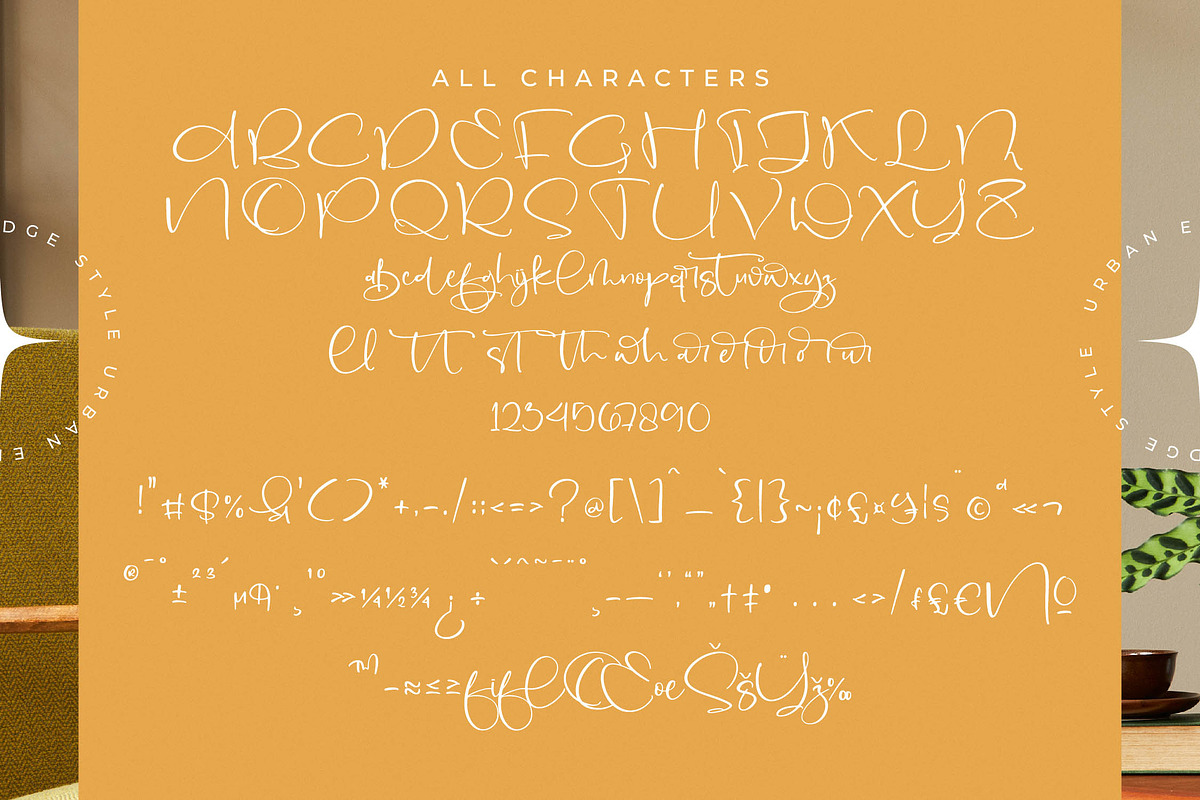 ALL CHARACTERS
ABCDEFGHIJKLM
NOPQRSTUVWXYZ
abcdefghijklmnopqrstuvwxyz
tt st th wh ar er vr or wr
1234567890
!"#$%&'()*+,-./:;<=>?@[\]^_`{|}~¡¢£¤¥¦§¨©ª«¬
®¯°±²³´µ¶·¸¹º»¼½¾¿÷ˋˊ^~-¨°‚–—‘’‚“”„†‡•...‹›⁄£€№
™−≈≤≥fiflŒœŠšŸž‰
DGE STYLE URBAN E
URBAN E
DGE STYLE